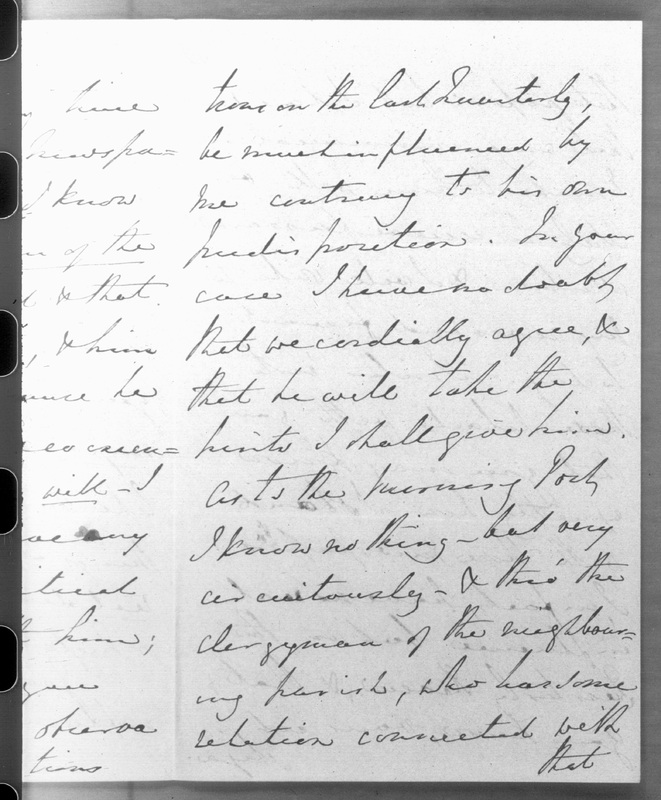 have
newspa=
I know
of the
& that
& him
he
will - I
any
him;
observa
tions
tions on the last Quarterly,
be much influenced by
me contrary to his own
predisposition. In your
case I have no doubt
that we cordially agree, &
that he will take the
hints I shall give him.
As to the Morning Post
I know nothing - but very
circuitously - & tho' the
clergyman of the neighbour=
ing parish, who has some
relation connected with
that